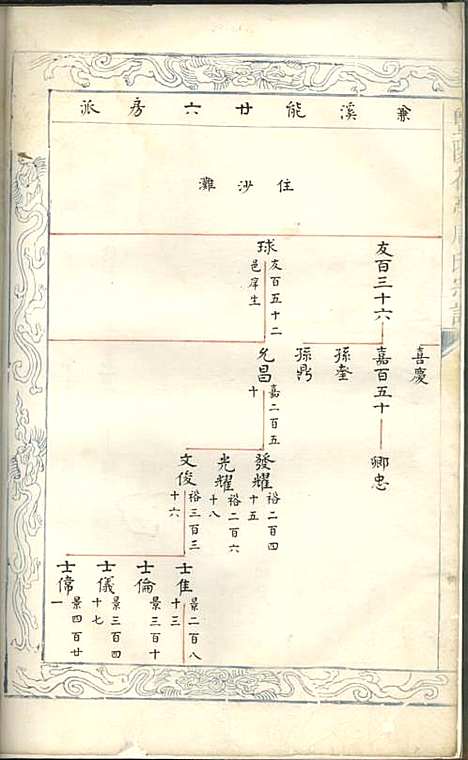 兼溪能廿六房派
住沙灘
友百三十六
球
友百五十二
邑庠生
喜慶
嘉百五十
孫奎
孫鼎
允昌
嘉二百五
十
卿忠
發耀
裕二百四
十五
光耀
裕二百六
十八
文俊
裕三百三
十六
士隹
景二百八
十三
士倫
景三百十
士儀
景三百四
十七
士偁
景四百廿
一